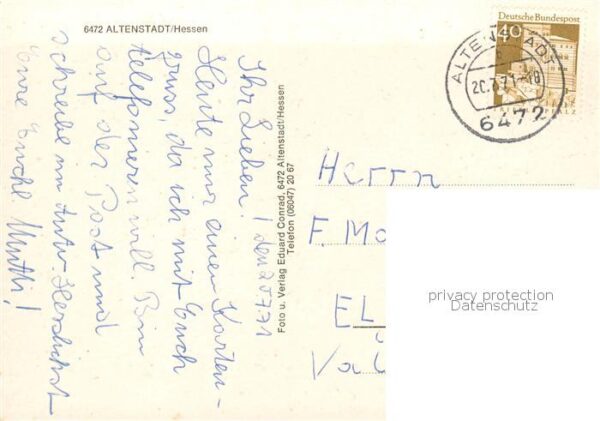 6472 ALTENSTADT/Hessen
Ihr Lieben! den 20.7.71
Heute nur einen Karten-
gruss, da ich mit Euch
telefonieren will. Bin
auf der Post und
schreibe im Auto. Herzlichst
Eure Euch Mutti!
Foto u. Verlag Eduard Conrad, 6472 Altenstadt/Hessen
Telefon (06047) 20 67
Deutsche Bundespost
40
ALTENSTADT
20.7.71-18
6472
Herrn
F. Mo
EL
privacy protection
Datenschutz